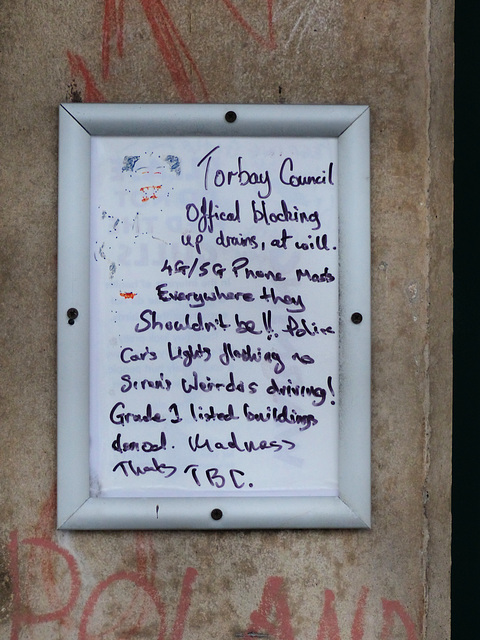 Torbay Council
Offical blocking
up drains, at will.
4G/5G Phone Masts
Everywhere they
Shouldn't be!! Police
Car's Lights flashing no
Siren's Weirdos driving!
Grade 1 listed buildings
demod. Madness
Thats TBC.
POLAND